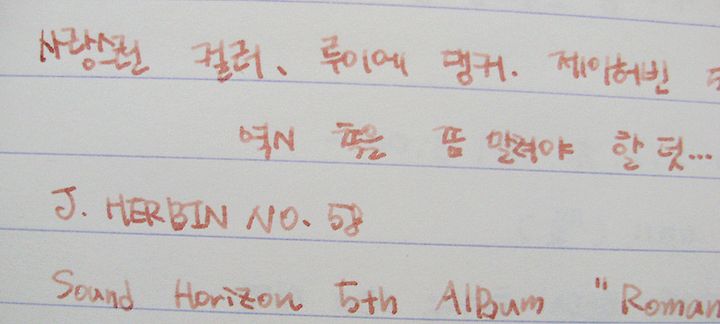 사랑스런 컬러、루이에 앵커. 제이허빈
역시 폭은 좀 말려야 할 텃...
J. HERBIN NO. 58
Sound Horizon 5th Album "Roman